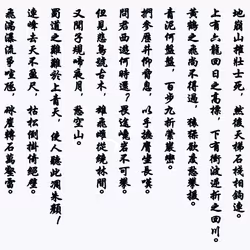 地崩山摧壯士死，然後天梯石棧相鉤連。
上有六龍回日之高標，下有衝波逆折之回川。
黃鶴之飛尚不得過，猿猱欲度愁攀援。
青泥何盤盤，百步九折縈巖巒。
捫參歷井仰脅息，以手撫膺坐長嘆。
問君西遊何時還？畏途巉岩不可攀。
但見悲鳥號古木，雄飛雌從繞林間。
又聞子規啼夜月，愁空山。
蜀道之難難於上青天，使人聽此凋朱顏！
連峰去天不盈尺，枯松倒掛倚絕壁。
飛湍瀑流爭喧豗，砯崖轉石萬壑雷。